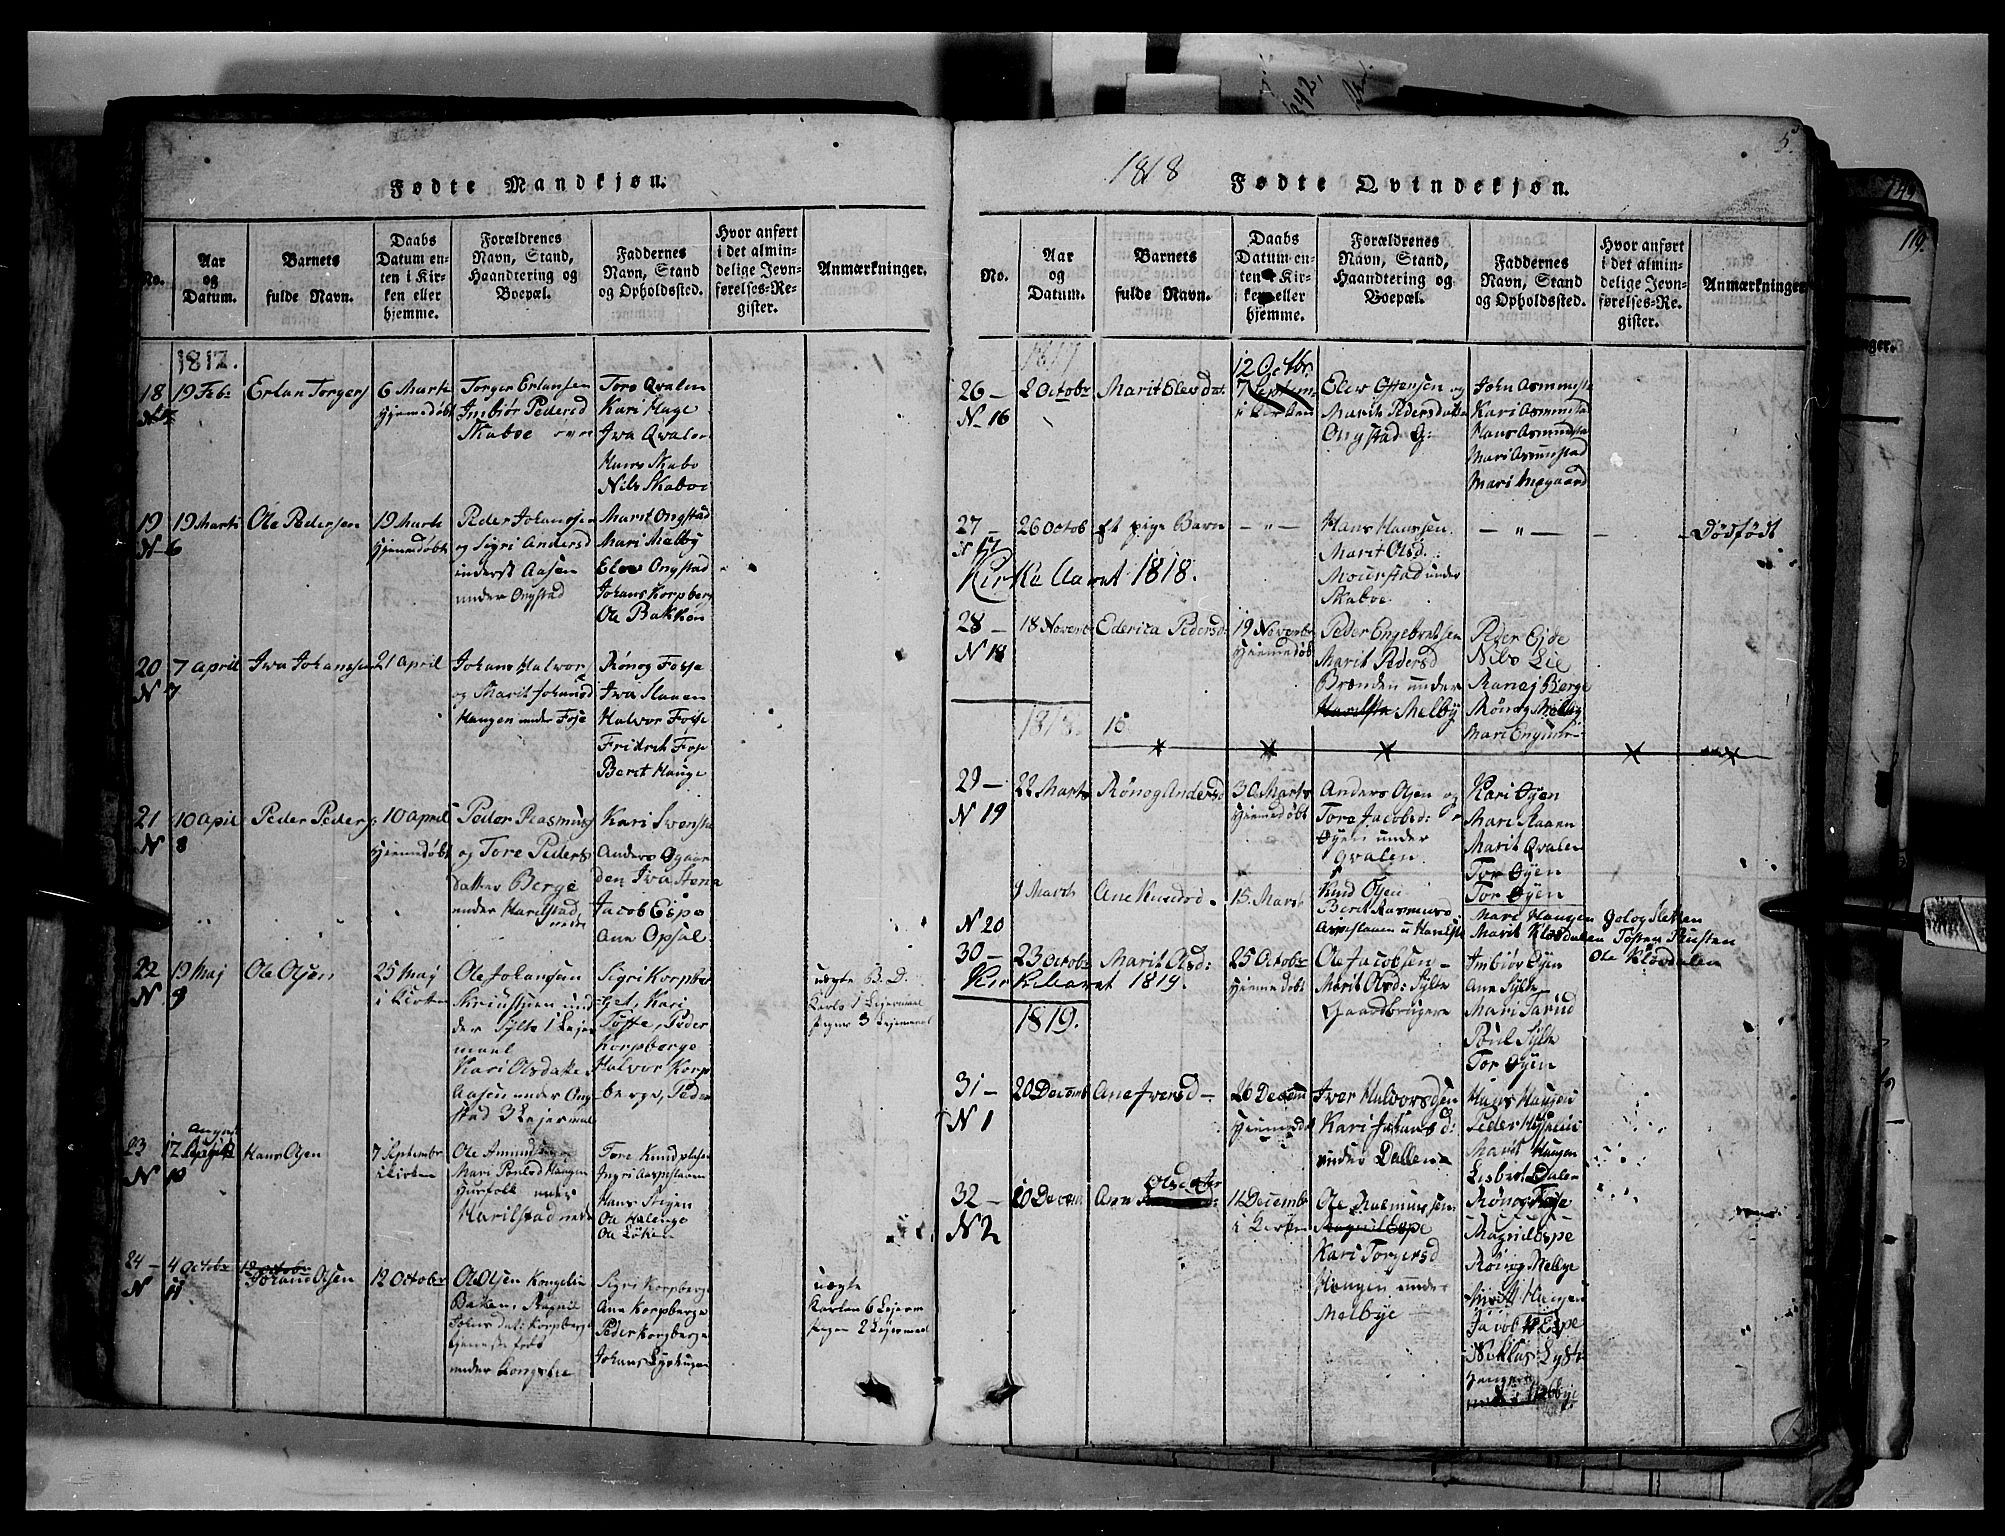 Fødte Mandkjøn.
No.
Aar og Datum.
Barnets fulde Navn.
Daabs Datum enten i Kirken eller hjemme.
Forældrenes Navn, Stand, Haandtering og Boepæl.
Faddernes Navn, Stand og Opholdssted.
Hvor anført i det almindelige Jevnførelses-Register.
Anmærkninger.
1817.
18
19 Feb:
Erlan Torgers
6 Marti
Hjemmedøbt
Torger Erlansen
Imbiør Pedersd
Skaboe
Tore Qvalen
Kari Hage
Iva Qvalen
Hans Skabo
Nils Skaboe
19
N 6
19 Marti
Ole Pedersen
19 Marti
Hjemmedøbt
Peder Johansen
og Sigri Andersd
inderst Aasen
under Ongstad
Marit Ongstad
Mari Melby
Elev Ongstad
Johans Korpberg
Ole Bakken
20
N 7
7 april
Iva Johanssen
21 april
Johans Halvor
og Marit Johansd
Haugen under Fosse
Rönog Fosse
Iva Slaaen
Halvor Fosse
Fridrik Fosse
Berit Hauge
21
N 8
10 april
Peder Peders
10 april
Hjemmedøbt
Peder Rasmuss
og Tore Peders
datter Berge
under Harilstad
Kari Svensta
Anders Qgaar
den Iva Stena
Jacob Espe
Ane Opsal
22
N 9
19 Maj
Ole Olsen
25 Maj
i Kirken
Ole Johansen
der Sylte 1 Lejer
maal
Kari Olsdatter
Aasen under Ong
stad 3 Lejermaal
Sigri Korpber
get, Kari
Tofte, Peder
Korpberge
Halvor Korp
berge, Peder
uægte B. D.
Karls 1 Lejermaal
Pigens 3 Lejermaal
23
N 10
17 august
Hans Olsen
7 Septembr
i Kirken
Ole Amunds
Mari Poulsd Haugen
Husfolk under
Harilstad
Tore Knudpladsen
Ingri Aaspslaaen
Hans Stigen
Ole Løken
24
N 11
4 Octobr
12 Octobr
Johans Olsen
12 Octobr
Ole Olsen Kongelien
Bakken, Ragnil
Johnsdat: Korpberge
tjeneste folk
under Kongslie
Sigri Korpberge
Ane Korpberge
Peder Korpberge
Johans Lyshugen
uægte
Karlen 6 Lejerm
Pigen 2 Lejermaal
5.
1818
Fødte Qvindekjøn.
No.
Aar og Datum.
Barnets fulde Navn.
Daabs Datum enten i Kirken eller hjemme.
Forældrenes Navn, Stand, Haandtering og Boepæl.
Faddernes Navn, Stand og Opholdssted.
Hvor anført i det almindelige Jevnførelses-Register.
Anmærkninger
1817
26 –
N 16
2 Octobr
Marit Elevsdat.
12 Octbr.
7 Septem
i Kirken
Elev Ottensen og
Marit Pedersdatter
Ongstad G:
John Asmunsta
Kari Asmunstad
Hans Asmundstad
Mari Asmunstad
Mari Amgaard
27 –
N 17
26 Octob
Et pige Barn
– „ –
Hans Hanssen
Marit Olsd:
Mourstad under
Skaboe
– „ –
–
– Dødfødt
Kirke Aaret 1818.
28 –
N 18
18 Novembr
Ederica Pedersd:
19 Novembr
Hjemmedøbt
Peder Engebretsen
Marit Pedersd
Brænden under
Harilsta Melby
Peder Eide
Nils Lie
Ranej Berge
Rönog Melby
Mari
1818.
29 –
N 19
22 Marts
Rønog Andersd
30 Marts
Hjemmedøbt
Anders Olsen og
Tore Jacobsd:
Øyen under
Qvalen
Kari Øyen
Mari Slaaen
Marit Qvalen
Tor Øyen
Tor Øyen
N 20
9 March
Ane Knudsd.
15. Marti
Knud Olsen
Berit Rasmusd:
Aspeslaaen u Harilsta
Mari Haugen
Marit Kløvdalen
Golog Sletten
Tosten Rusten
Ole Kløvdalen
30 –
23 Octobr
Marit Olsd:
25 Octobr
Hjemmedøbt
Ole Jacobsen –
Marit Olsd: Sylte
Gaardbrugere
Imbiør Øyen
Ane Sylte
Mari Tarud
Poul Sylte
Tor Øyen
Kirke Aaret 1819.
1819.
31 –
N 1
20 Decemb
Ane Iversd –
26 Decem
Hjemmedøbt
Iver Halvorsdsen
Kari Johansd:
under Dallen
Hans Haugen
Peder
Marit Haugen
Lisbet Dalen
Rønog Fosse
32 –
N 2
10 Decem
Ane Olsdatter
11 Decembr
i Kirken
Ole Rasmussen:
Magnil Espe
Kari Torgersd
Haugen under
Melbye
Magnild Espe
Rønog Melbye
Marit Haugen
Jacob Espe
Niklas Lys
haugen
149
119.